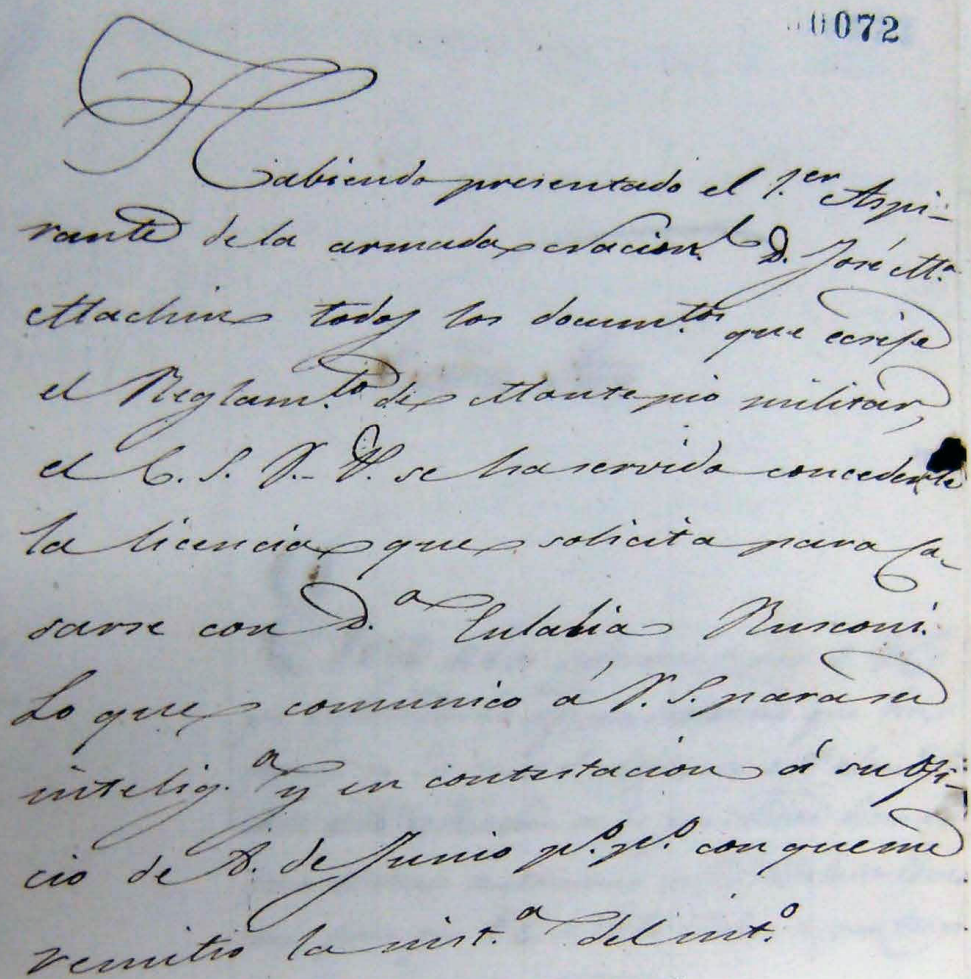 00072
Habiendo presentado el 1.er Aspi-
rante de la armada nacion.l D. José M.a
Machin todos los docum.tos que ecsije
el Reglam.to de Monte pio militar,
el E. S. V. P. se ha servido concederle
la licencia que solicita para ca-
sarse con D.a Eulalia Rusconi.
Lo que comunico á V. S. para su
intelig.a y en contestacion á su ofi-
cio de de Junio p.o p.o con que me
remitio la inst.a del int.o